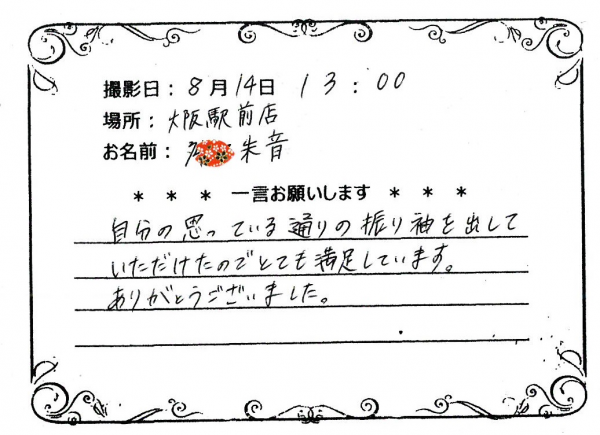 撮影日：8月14日 13:00
場所：大阪駅前店
お名前：朱音
＊ ＊ ＊ 一言お願いします ＊ ＊ ＊
自分の思っている通りの振り袖を出して
いただけたのでとても満足しています。
ありがとうございました。